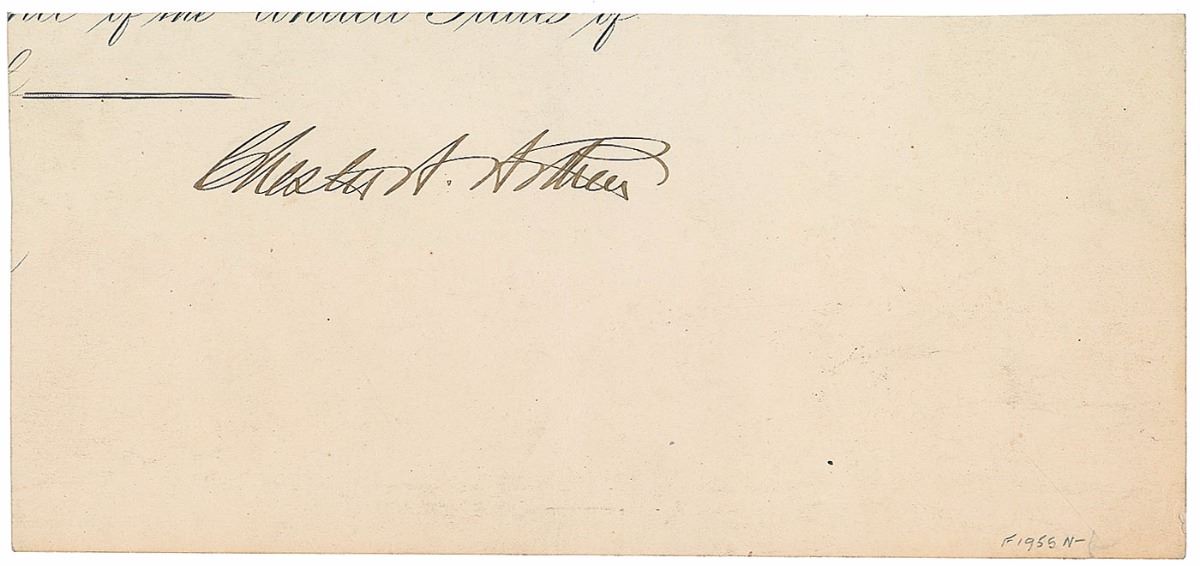 of the United States of
Chester A. Arthur
F1955N-